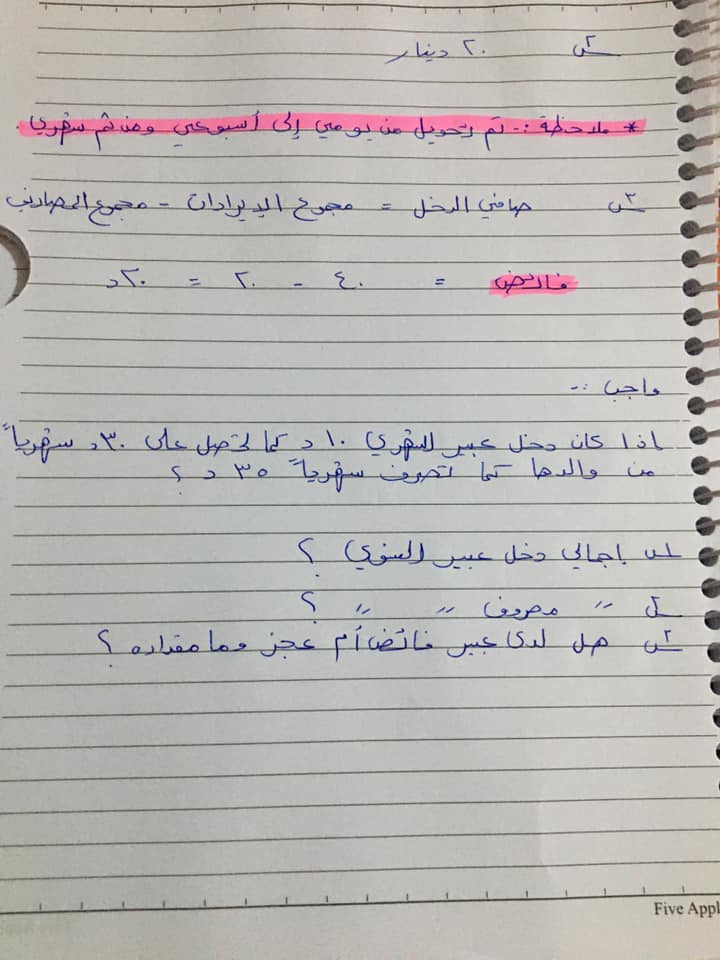 س٢ ٢٠ دينار
* ملاحظة :- تم تحويل من يومي إلى أسبوعي ومن ثم شهري.
س٣ صافي الدخل = مجموع الإيرادات - مجموع المصاريف
فائض = ٤٠ - ٢٠ = ٢٠ د
واجب :-
إذا كان دخل عبير الشهري ١٠ د كما تحصل على ٣٠ د شهرياً
من والدها كما تصرف شهرياً ٣٥ د ؟
س١ إجمالي دخل عبير السنوي ؟
س٢ // مصروف // // ؟
س٣ هل لدى عبير فائض أم عجز وما مقداره ؟
Five Appl